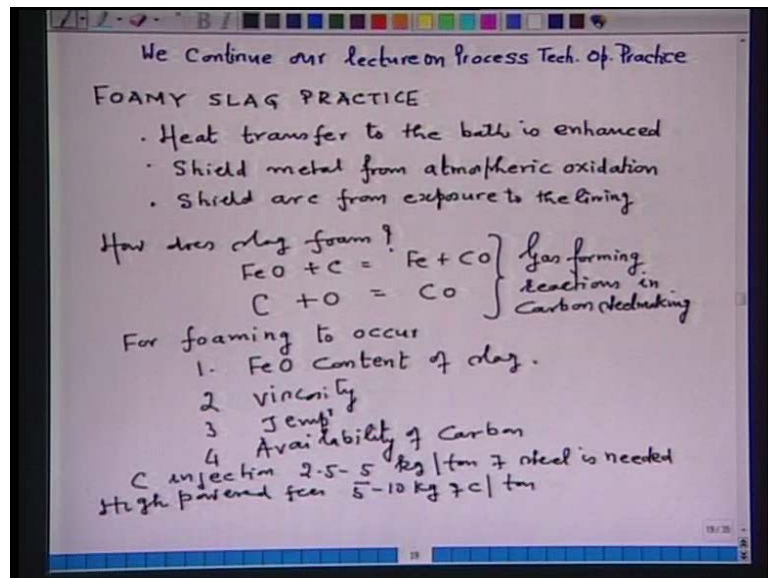 We Continue our lecture on Process Tech. Op. Practice
FOAMY SLAG PRACTICE
· Heat transfer to the bath is enhanced
· Shield metal from atmospheric oxidation
· Shield arc from exposure to the lining
How does slag foam?
FeO + C = Fe + CO } Gas forming
C + O = CO } reactions in
Carbon steelmaking
For foaming to occur
1. FeO Content of slag.
2 Viscosity
3 Temp
4 Availability of Carbon
C injection 2.5-5 kg/ton of steel is needed
High powered fces 5-10 kg of C/ton
19/35
19